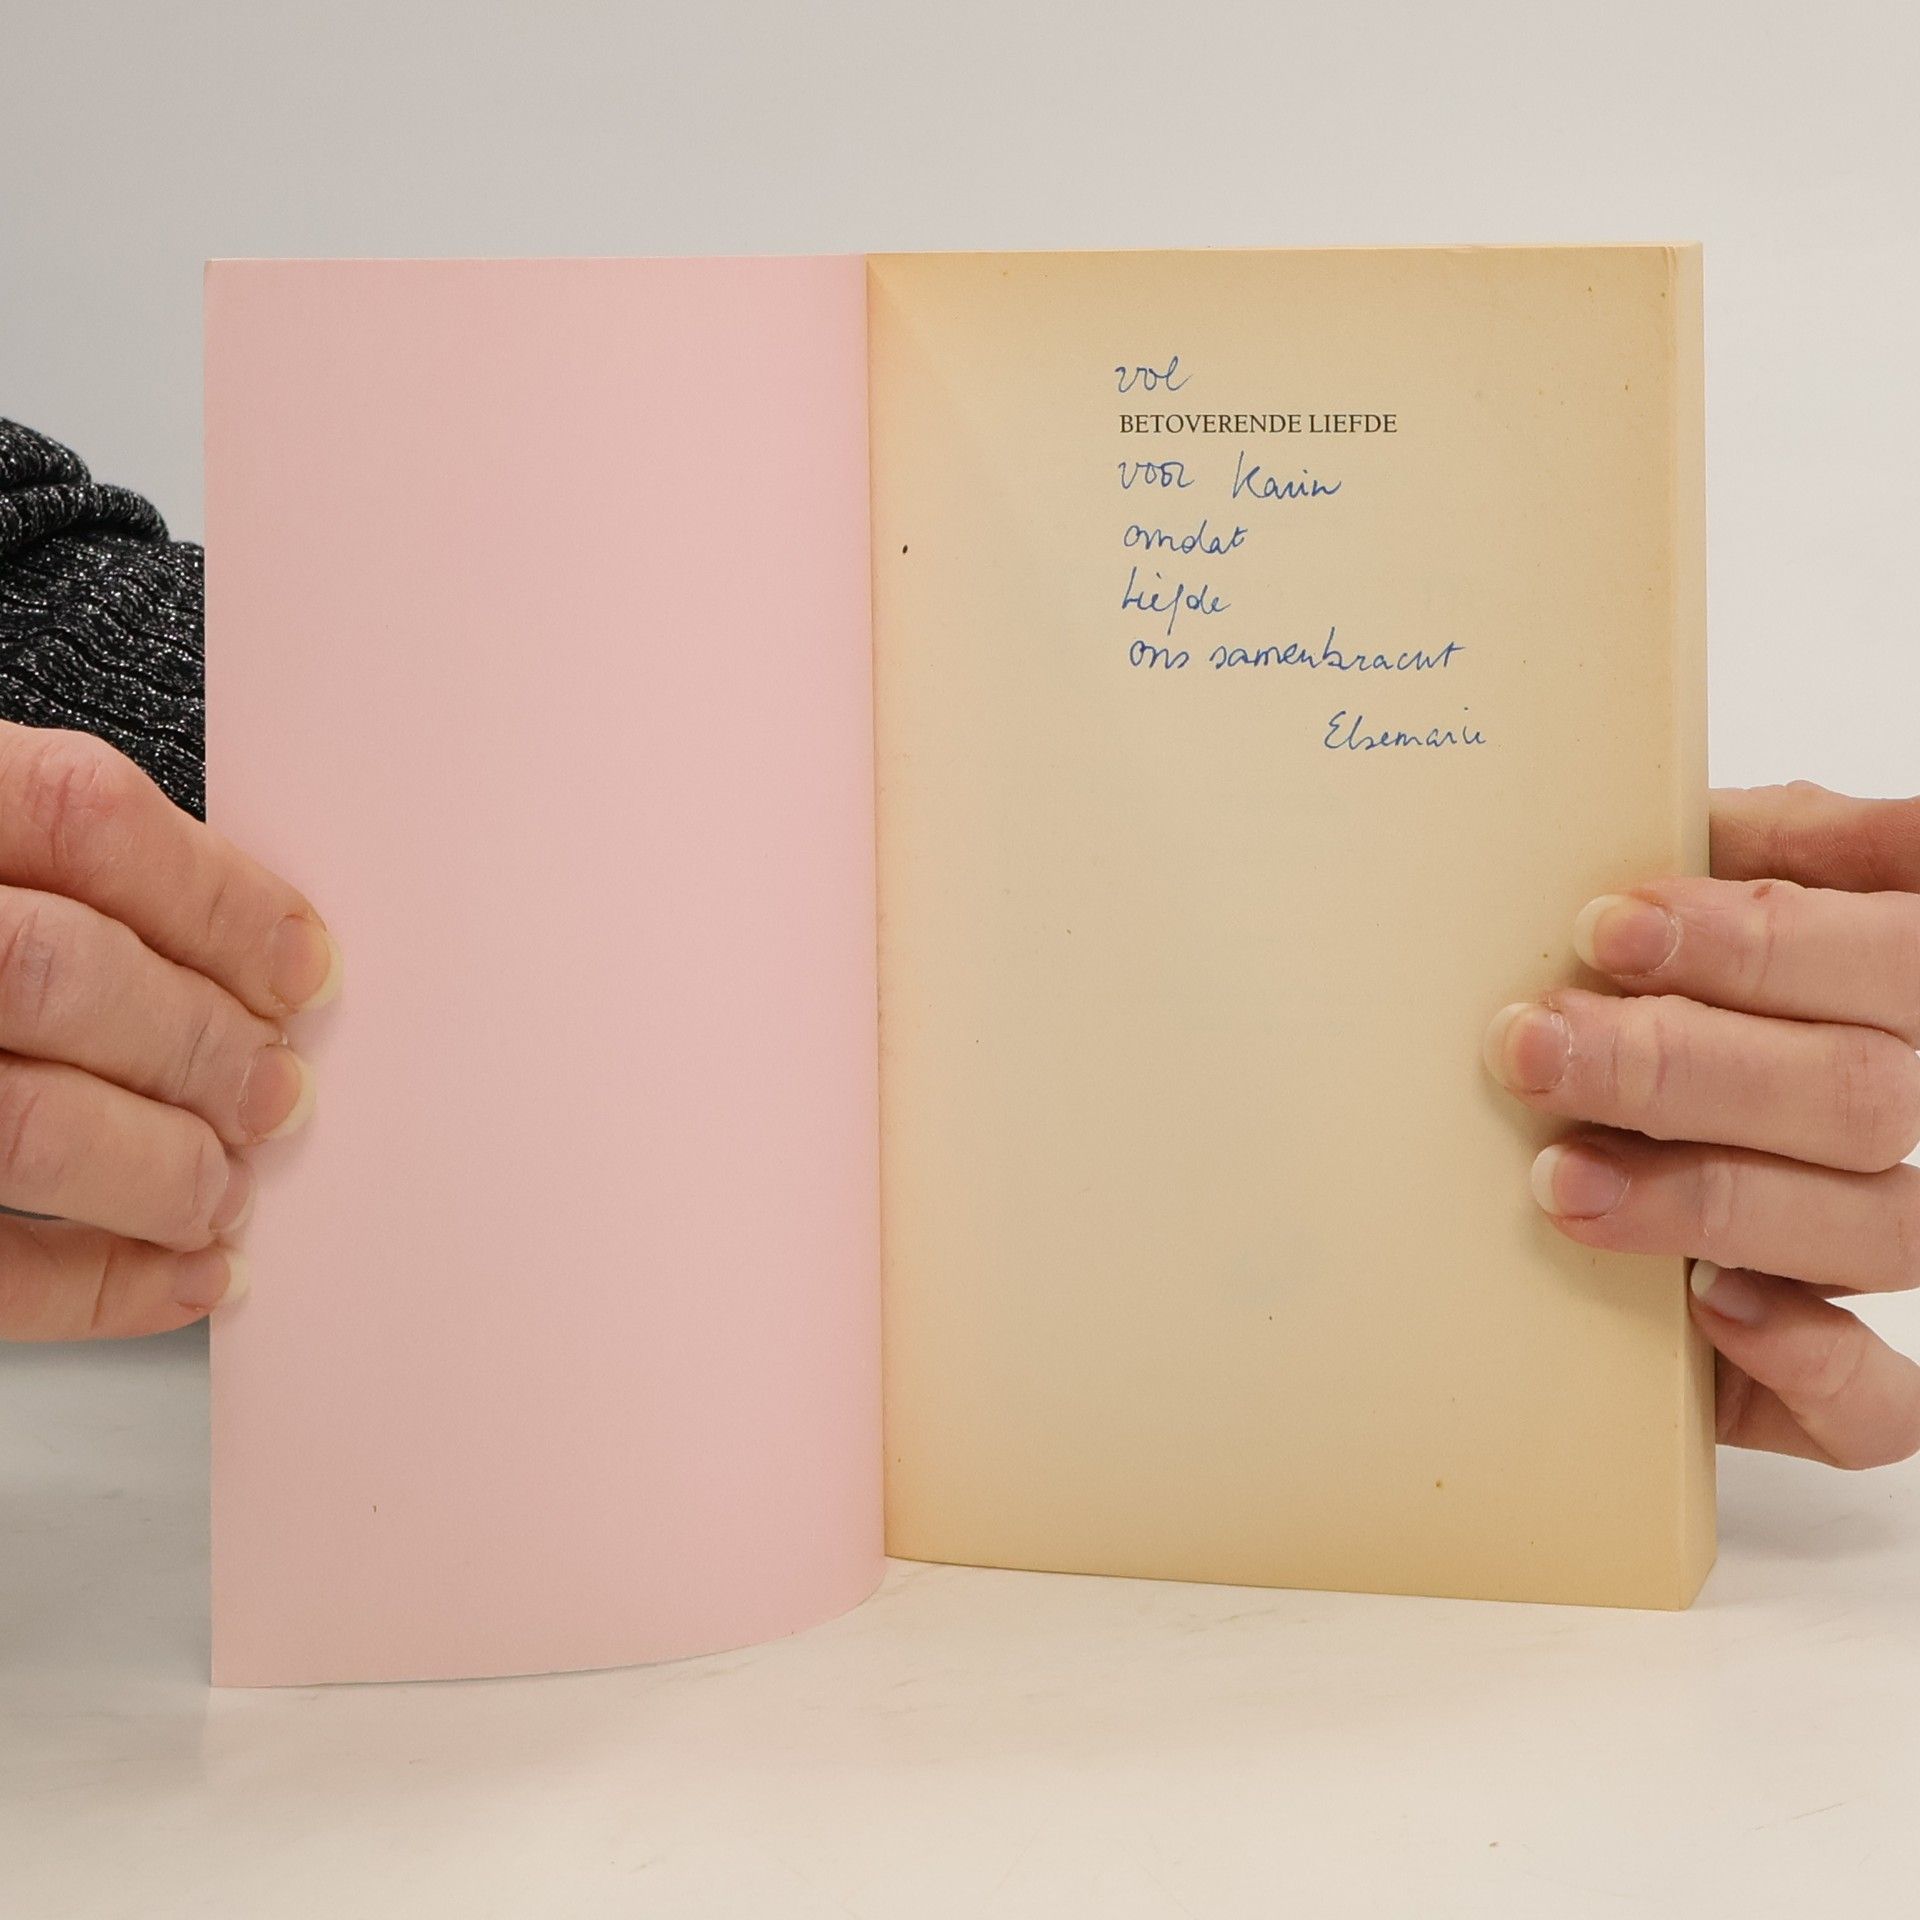 vol
BETOVERENDE LIEFDE
voor Karin
omdat
liefde
ons samenbracht
Elsemarie